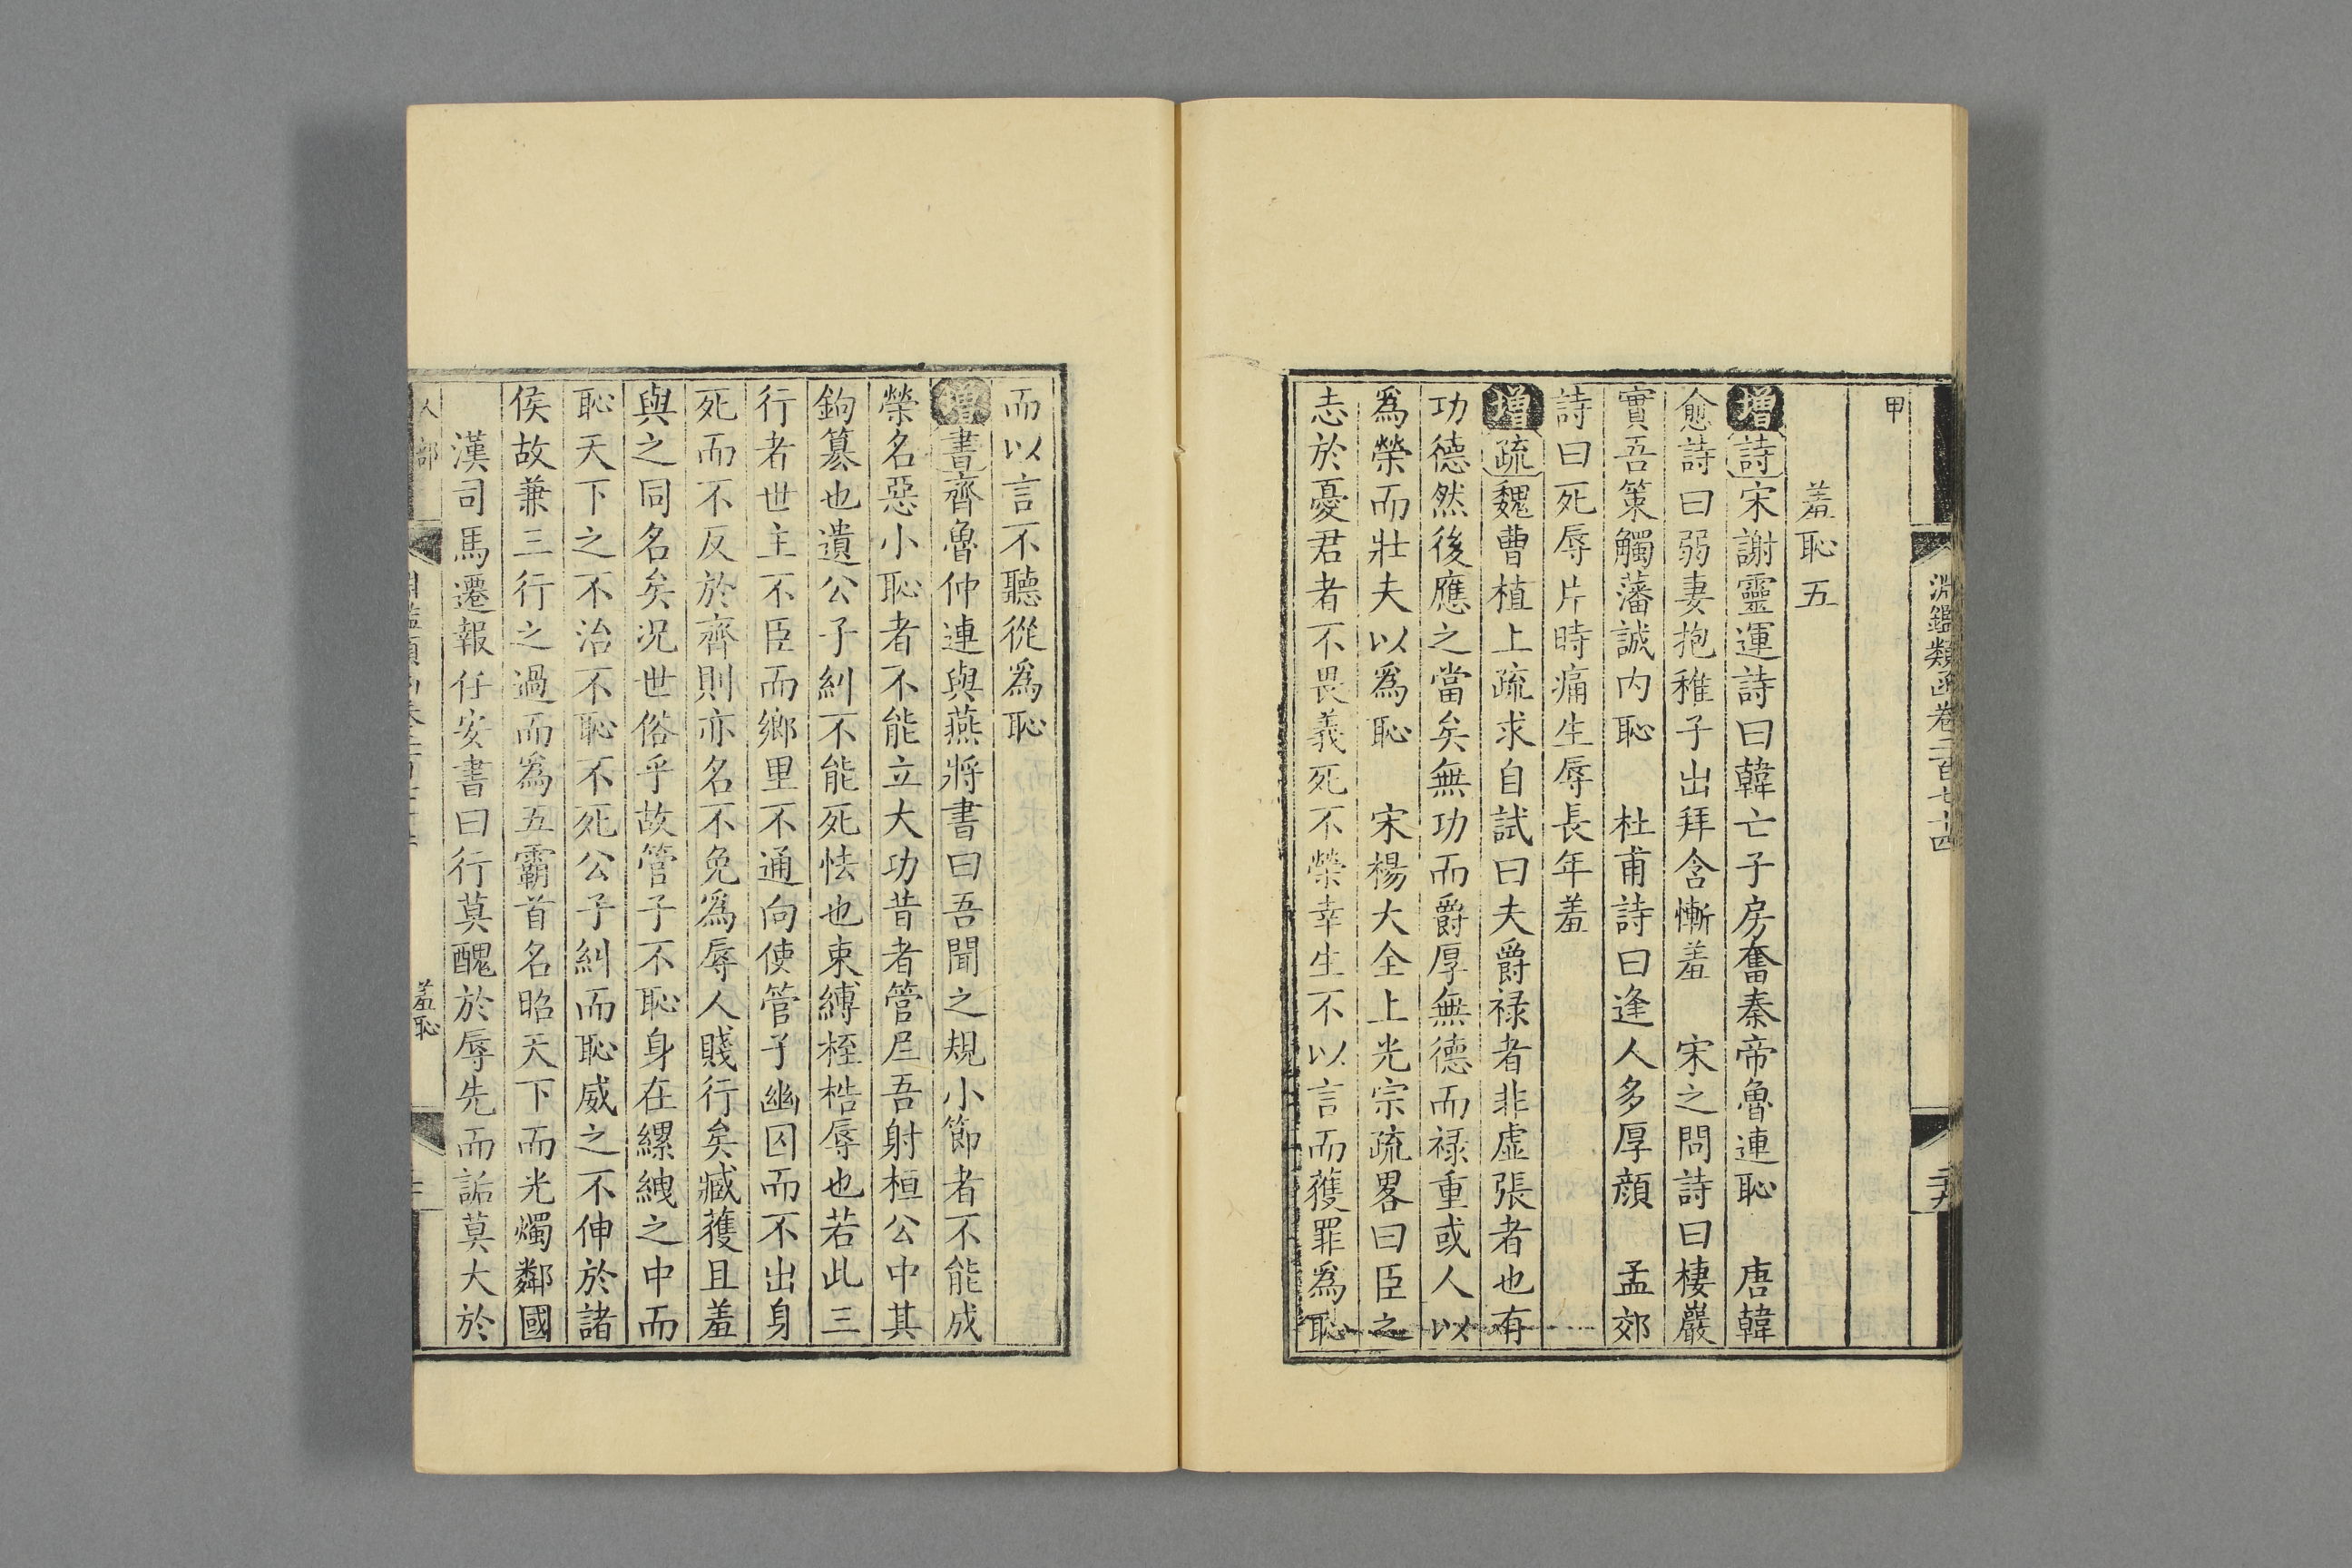 淵鑑類函卷二百七十四
甲
羞恥五
增詩宋謝靈運詩曰韓亡子房奮秦帝魯連恥　唐韓
愈詩曰弱妻抱稚子出拜含慚羞　宋之問詩曰棲巖
實吾策觸藩誠内恥　杜甫詩曰逢人多厚顔　孟郊
詩曰死辱片時痛生辱長年羞
增疏魏曹植上疏求自試曰夫爵祿者非虛張者也有
功德然後應之當矣無功而爵厚無德而祿重或人以
爲榮而壯夫以爲恥　宋楊大全上光宗疏畧曰臣之
志於憂君者不畏義死不榮幸生不以言而獲罪爲恥
而以言不聽從爲恥
增書齊魯仲連與燕將書曰吾聞之規小節者不能成
榮名惡小恥者不能立大功昔者管夷吾射桓公中其
鉤篡也遺公子糾不能死怯也束縛桎梏辱也若此三
行者世主不臣而鄉里不通向使管子幽囚而不出身
死而不反於齊則亦名不免爲辱人賤行矣臧獲且羞
與之同名矣况世俗乎故管子不恥身在縲絏之中而
恥天下之不治不恥不死公子糾而恥威之不伸於諸
侯故兼三行之過而爲五霸首名昭天下而光燭鄰國
漢司馬遷報任安書曰行莫醜於辱先而詬莫大於
人部
羞恥